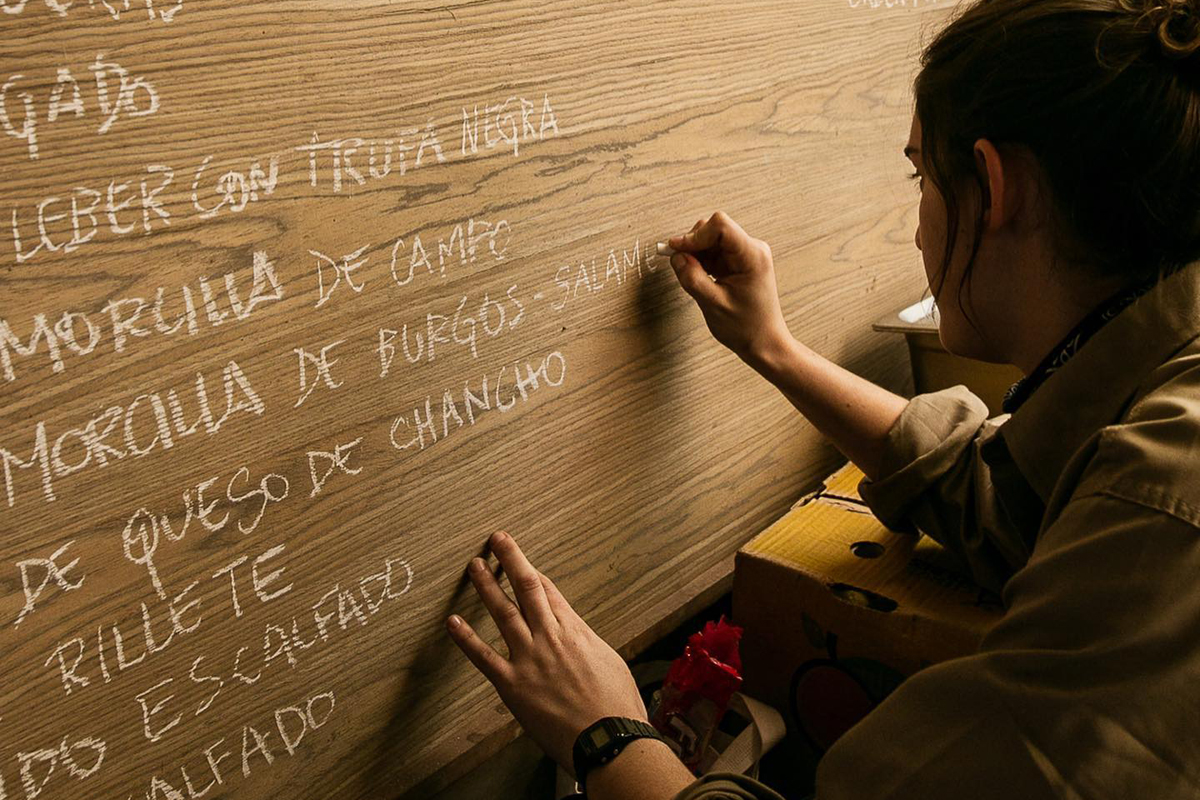 GADO
LEBER CON TRUFA NEGRA
MORCILLA DE CAMPO
MORCILLA DE BURGOS - SALAME
DE QUESO DE CHANCHO
RILLETE
ESCALFADO
ALFADO